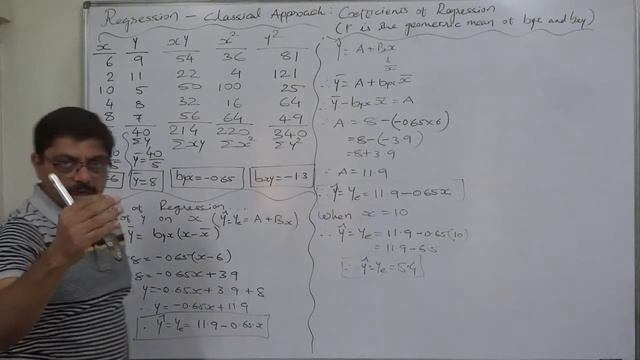 Regression - Classical Approach: Coefficients of Regression
(r is the geometric mean of byx and bxy)
x y xy x² y²
6 9 54 36 81
2 11 22 4 121
10 5 50 100 25
4 8 32 16 64
8 7 56 64 49
40 214 220 340
Σy Σxy Σx² Σy²
ȳ=40/5
=6 ȳ=8 byx=-0.65 bxy=-1.3
of Regression
of y on x (Ŷ=Ye=A+Bx)
ȳ= byx(x-x̄)
8=-0.65(x-6)
8=-0.65x+3.9
y=-0.65x+3.9+8
∴ y=-0.65x+11.9
∴ Ŷ=Ye=11.9-0.65x
∴ Ŷ=A+Bx
∴ ȳ=A+byx x̄
∴ ȳ-byx x̄=A
∴ A=8-(-0.65x6)
=8-(-3.9)
=8+3.9
∴ A=11.9
∴ Ŷ=Ye=11.9-0.65x
When x=10
∴ Ŷ=Ye=11.9-0.65(10)
=11.9-6.5
∴ Ŷ=Ye=5.4